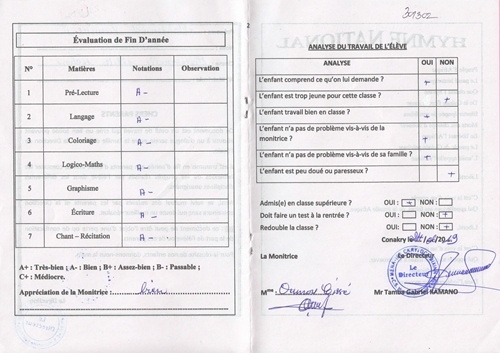 Évaluation de Fin D'année
N° Matières Notations Observation
1 Pré-Lecture A-
2 Langage A-
3 Coloriage A-
4 Logico-Maths A-
5 Graphisme A-
6 Écriture A-
7 Chant – Récitation A-
A+ : Très-bien ; A- : Bien ; B+ : Assez-bien ; B- : Passable ;
C+ : Médiocre.
Appréciation de la Monitrice : bien
301302
HYMNE NATIONAL
ANALYSE DU TRAVAIL DE L'ÉLÈVE
ANALYSE OUI NON
L'enfant comprend ce qu'on lui demande ? +
L'enfant est trop jeune pour cette classe ? +
L'enfant travail bien en classe ? +
L'enfant n'a pas de problème vis-à-vis de la
monitrice ? +
L'enfant n'a pas de problème vis-à-vis de sa famille ? +
L'enfant est peu doué ou paresseux ? +
Admis(e) en classe supérieure ? OUI : + NON :
Doit faire un test à la rentrée ? OUI : NON : +
Redouble la classe ? OUI : NON : +
Conakry le
La Monitrice Le Directeur
Le
Directeur
Mme Oumou Cissé
Mr Tamba Gabriel KAMANO